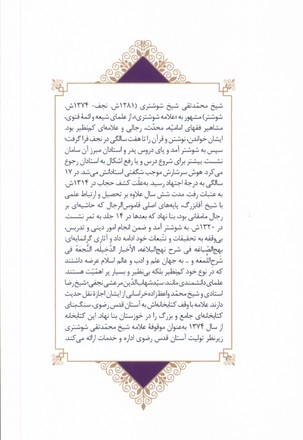 شیخ محمّدتقی شیخ شوشتری (۱۲۸۱ش. نجف- ۱۳۷۴ش.
شوشتر) مشهور به «علامه شوشتری»، از علمای شیعه و ائمۀ فتوی،
مشاهیر فقهای امامیّه، محدّث، رجالی و علامه‌ای کم‌نظیر بود.
ایشان خواندن، نوشتن و قرآن را تا هفت سالگی در نجف فرا گرفت؛
سپس به شوشتر آمد و پای دروس پدر و استادان مبرز آن سامان
نشست. بیشتر برای شروع درس و یا رفع اشکال به استادان رجوع
می‌کرد. هوش سرشارش موجب شگفتی استادانش می‌شد. در ۱۷
سالگی به درجۀ اجتهاد رسید. به‌علّت کشف حجاب در ۱۳۱۴ش.
به عتبات رفت. مدت شش سال علاوه بر تحصیل و ارتباط علمی
با شیخ آقابزرگ، پایه‌های اصلی قاموس‌الرجال که حاشیه‌ای بر
رجال مامقانی بود، بنا نهاد که بعدها در ۱۴ جلد به ثمر نشست.
در ۱۳۲۰ش. به شوشتر آمد و ضمن انجام امور دینی و تدریس،
بی‌وقفه به تحقیقات و تتبّعات خود ادامه داد و آثاری گرانمایه‌ای
بهج‌الصّباغه فی شرح نهج‌البلاغه، الأخبار الدّخیله، النّجعة فی
شرح اللّمعه و ... به جهان علم و ادب و عالم اسلام عرضه داشتند
که در نوع خود کم‌نظیر بلکه بی‌نظیر و بسیار پر اهمّیّت هستند.
علمای دانشمندی مانند: سیّدشهاب‌الدّین مرعشی نجفی؛ شیخ رضا
استادی و شیخ محمّد واعظ‌زاده خراسانی از ایشان اجازۀ نقل حدیث
دارند. علامه با وقف کتابخانه‌اش به آستان قدس رضوی، سنگ‌بنای
کتابخانه‌ای جامع و بزرگ را در خوزستان بنا نهاد. این کتابخانه
از سال ۱۳۷۴ به‌عنوان موقوفۀ علامه شیخ محمّدتقی شوشتری
زیرنظر تولیت آستان قدس رضوی اداره و خدمات ارائه می‌کند.